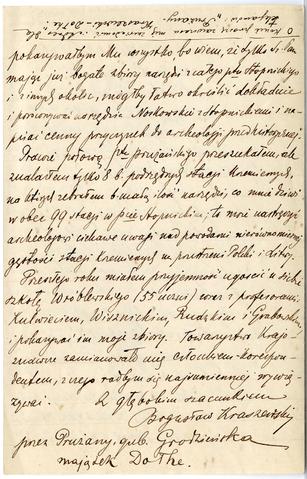 pokazywałbym Mu wszystko bo wiem, że tylko
mając już bogate zbiory narzędzi z całego ptu Stopnickiego
i innych okolic, mógłby łatwo określić dokładnie
i porównywać narzędzia Noskowskie z Stopnickiemi i na-
pisać cenny przyczynek do archeologji przedhistorycznej.
Prawie połowę ptu Prużańskiego przeszukałem, ale
znalazłem tylko 8 b. podrzędnych stacji krzemiennych,
na których zebrałem b. małą ilość narzędzi, co mnie dziwi
wobec 99 stacji w pcie Stopnickim; to może nastręczyć
archeologowi ciekawe uwagi nad powodami nierównomiernej
gęstości stacji krzemiennych na przestrzeni Polski i Litwy.
Przeszłego roku miałem przyjemność ugościć u siebie
szkołę Wróblewskiego (55 uczni) wraz z profesorami
Kulwieciem, Wisznickim, Rudzkim i Grabowskim
i pokazywać im moje zbiory. Towarzystwo Krajo-
znawcze zamianowało mię członkiem-korespon-
dentem, z czego radbym się najsumienniej wywią-
zywać.
Z głębokim szacunkiem
Bogusław Kraszewski
przez Prużany, gub. Grodzieńska
majątek Dołhe.